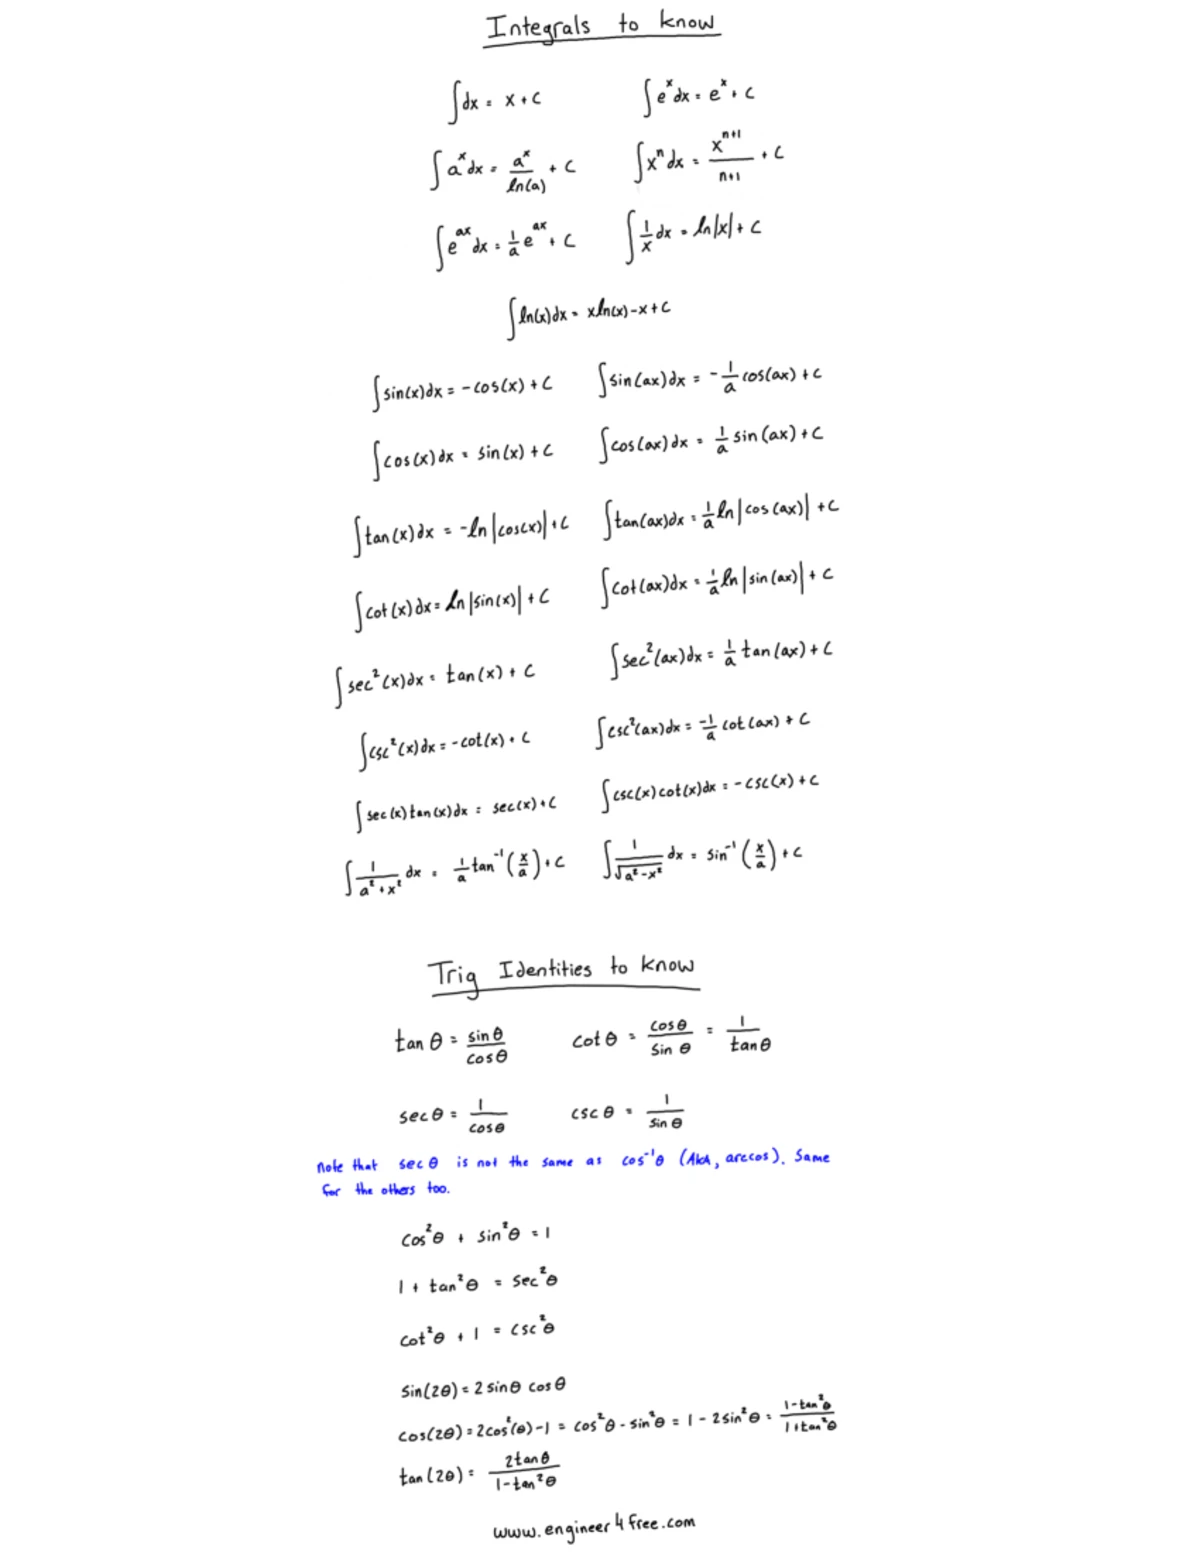 Integrals to know
∫dx = x + C ∫eˣdx = eˣ + C
∫aˣdx = aˣ/ln(a) + C ∫xⁿdx = xⁿ⁺¹/n+1 + C
∫eᵃˣdx = 1/a eᵃˣ + C ∫1/x dx = ln|x| + C
∫ln(x)dx = xln(x)-x+C
∫sin(x)dx = -cos(x) + C ∫sin(ax)dx = -1/a cos(ax) + C
∫cos(x)dx = sin(x) + C ∫cos(ax)dx = 1/a sin(ax) + C
∫tan(x)dx = -ln|cos(x)| + C ∫tan(ax)dx = 1/a ln|cos(ax)| + C
∫cot(x)dx = ln|sin(x)| + C ∫cot(ax)dx = 1/a ln|sin(ax)| + C
∫sec²(x)dx = tan(x) + C ∫sec²(ax)dx = 1/a tan(ax) + C
∫csc²(x)dx = -cot(x) + C ∫csc²(ax)dx = -1/a cot(ax) + C
∫sec(x)tan(x)dx = sec(x) + C ∫csc(x)cot(x)dx = -csc(x) + C
∫1/a²+x² dx = 1/a tan⁻¹(x/a) + C ∫1/√a²-x² dx = sin⁻¹(x/a) + C
Trig Identities to know
tan θ = sin θ/cos θ cot θ = cos θ/sin θ = 1/tan θ
sec θ = 1/cos θ csc θ = 1/sin θ
Note that sec θ is not the same as cos⁻¹θ (AKA, arccos). Same
for the others too.
cos²θ + sin²θ = 1
1 + tan²θ = sec²θ
cot²θ + 1 = csc²θ
sin(2θ) = 2 sin θ cos θ
cos(2θ) = 2cos²(θ)-1 = cos²θ - sin²θ = 1 - 2sin²θ = 1-tan²θ/1+tan²θ
tan(2θ) = 2tan θ/1-tan²θ
www.engineer4free.com